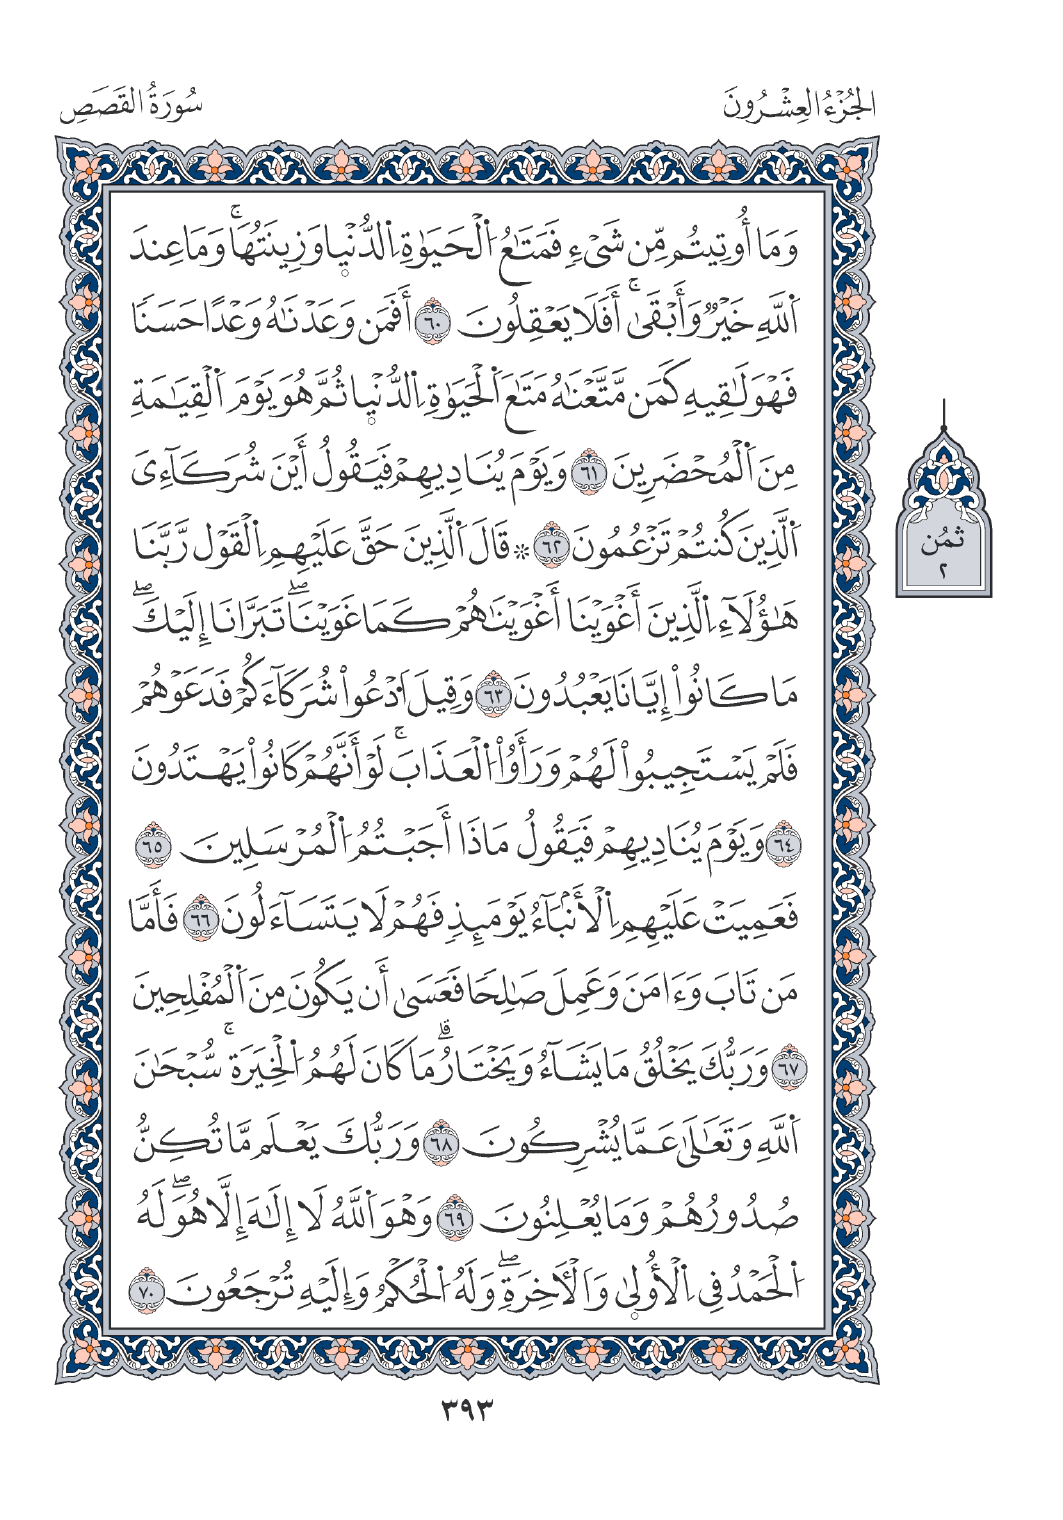 الجُزْءُ العِشْرُونَ
سُورَةُ القَصَصِ
وَمَا أُوتِيتُم مِّن شَيْءٖ فَمَتَٰعُ اُ۬لْحَيَوٰةِ اِ۬لدُّنْي۪ا وَزِينَتُهَاۚ وَمَا عِندَ
اَ۬للَّهِ خَيْرٞ وَأَبْقَىٰۚ أَفَلَا يَعْقِلُونَ ٦٠ أَفَمَن وَعَدْنَٰهُ وَعْدًا حَسَنٗا
فَهْوَ لَٰقِيهِ كَمَن مَّتَّعْنَٰهُ مَتَٰعَ اَ۬لْحَيَوٰةِ اِ۬لدُّنْي۪ا ثُمَّ هُوَ يَوْمَ اَ۬لْقِيَٰمَةِ
مِنَ اَ۬لْمُحْضَرِينَ ٦١ وَيَوْمَ يُنَادِيهِمْ فَيَقُولُ أَيْنَ شُرَكَآءِيَ
اَ۬لَّذِينَ كُنتُمْ تَزْعُمُونَ ٦٢ ۞ قَالَ اَ۬لَّذِينَ حَقَّ عَلَيْهِمِ اِ۬لْقَوْل رَّبَّنَا
هَٰٓؤُلَآءِ اِ۬لَّذِينَ أَغْوَيْنَا أَغْوَيْنَٰهُمْ كَمَا غَوَيْنَاۖ تَبَرَّانَا إِلَيْكَۖ
مَا كَانُواْ إِيَّانَا يَعْبُدُونَ ٦٣ وَقِيلَ اَ۟دْعُواْ شُرَكَآءَكُمْ فَدَعَوْهُمْ
فَلَمْ يَسْتَجِيبُواْ لَهُمْ وَرَأَوُاْ اُ۬لْعَذَابَۚ لَوْ أَنَّهُمْ كَانُواْ يَهْتَدُونَ
٦٤ وَيَوْمَ يُنَادِيهِمْ فَيَقُولُ مَاذَا أَجَبْتُمُ اُ۬لْمُرْسَلِينَ ٦٥
فَعَمِيَتْ عَلَيْهِمِ اِ۬لْأَنۢبَآءُ يَوْمَئِذٖ فَهُمْ لَا يَتَسَآءَلُونَ ٦٦ فَأَمَّا
مَن تَابَ وَءَامَنَ وَعَمِلَ صَٰلِحٗا فَعَسَىٰ أَن يَكُونَ مِنَ اَ۬لْمُفْلِحِينَ
٦٧ وَرَبُّكَ يَخْلُقُ مَا يَشَآءُ وَيَخْتَارُۗ مَا كَانَ لَهُمُ اُ۬لْخِيَرَةُۚ سُبْحَٰنَ
اَ۬للَّهِ وَتَعَٰلَىٰ عَمَّا يُشْرِكُونَ ٦٨ وَرَبُّكَ يَعْلَم مَّا تُكِنُّ
صُدُورُهُمْ وَمَا يُعْلِنُونَ ٦٩ وَهْوَ اَ۬للَّهُ لَا إِلَٰهَ إِلَّا هُوَۖ لَهُ
اُ۬لْحَمْدُ فِي اِ۬لْأُول۪ىٰ وَاَ۬لْأٓخِرَةِۖ وَلَهُ اُ۬لْحُكْمُ وَإِلَيْهِ تُرْجَعُونَ ٧٠
ثمُن
٢
٣٩٣